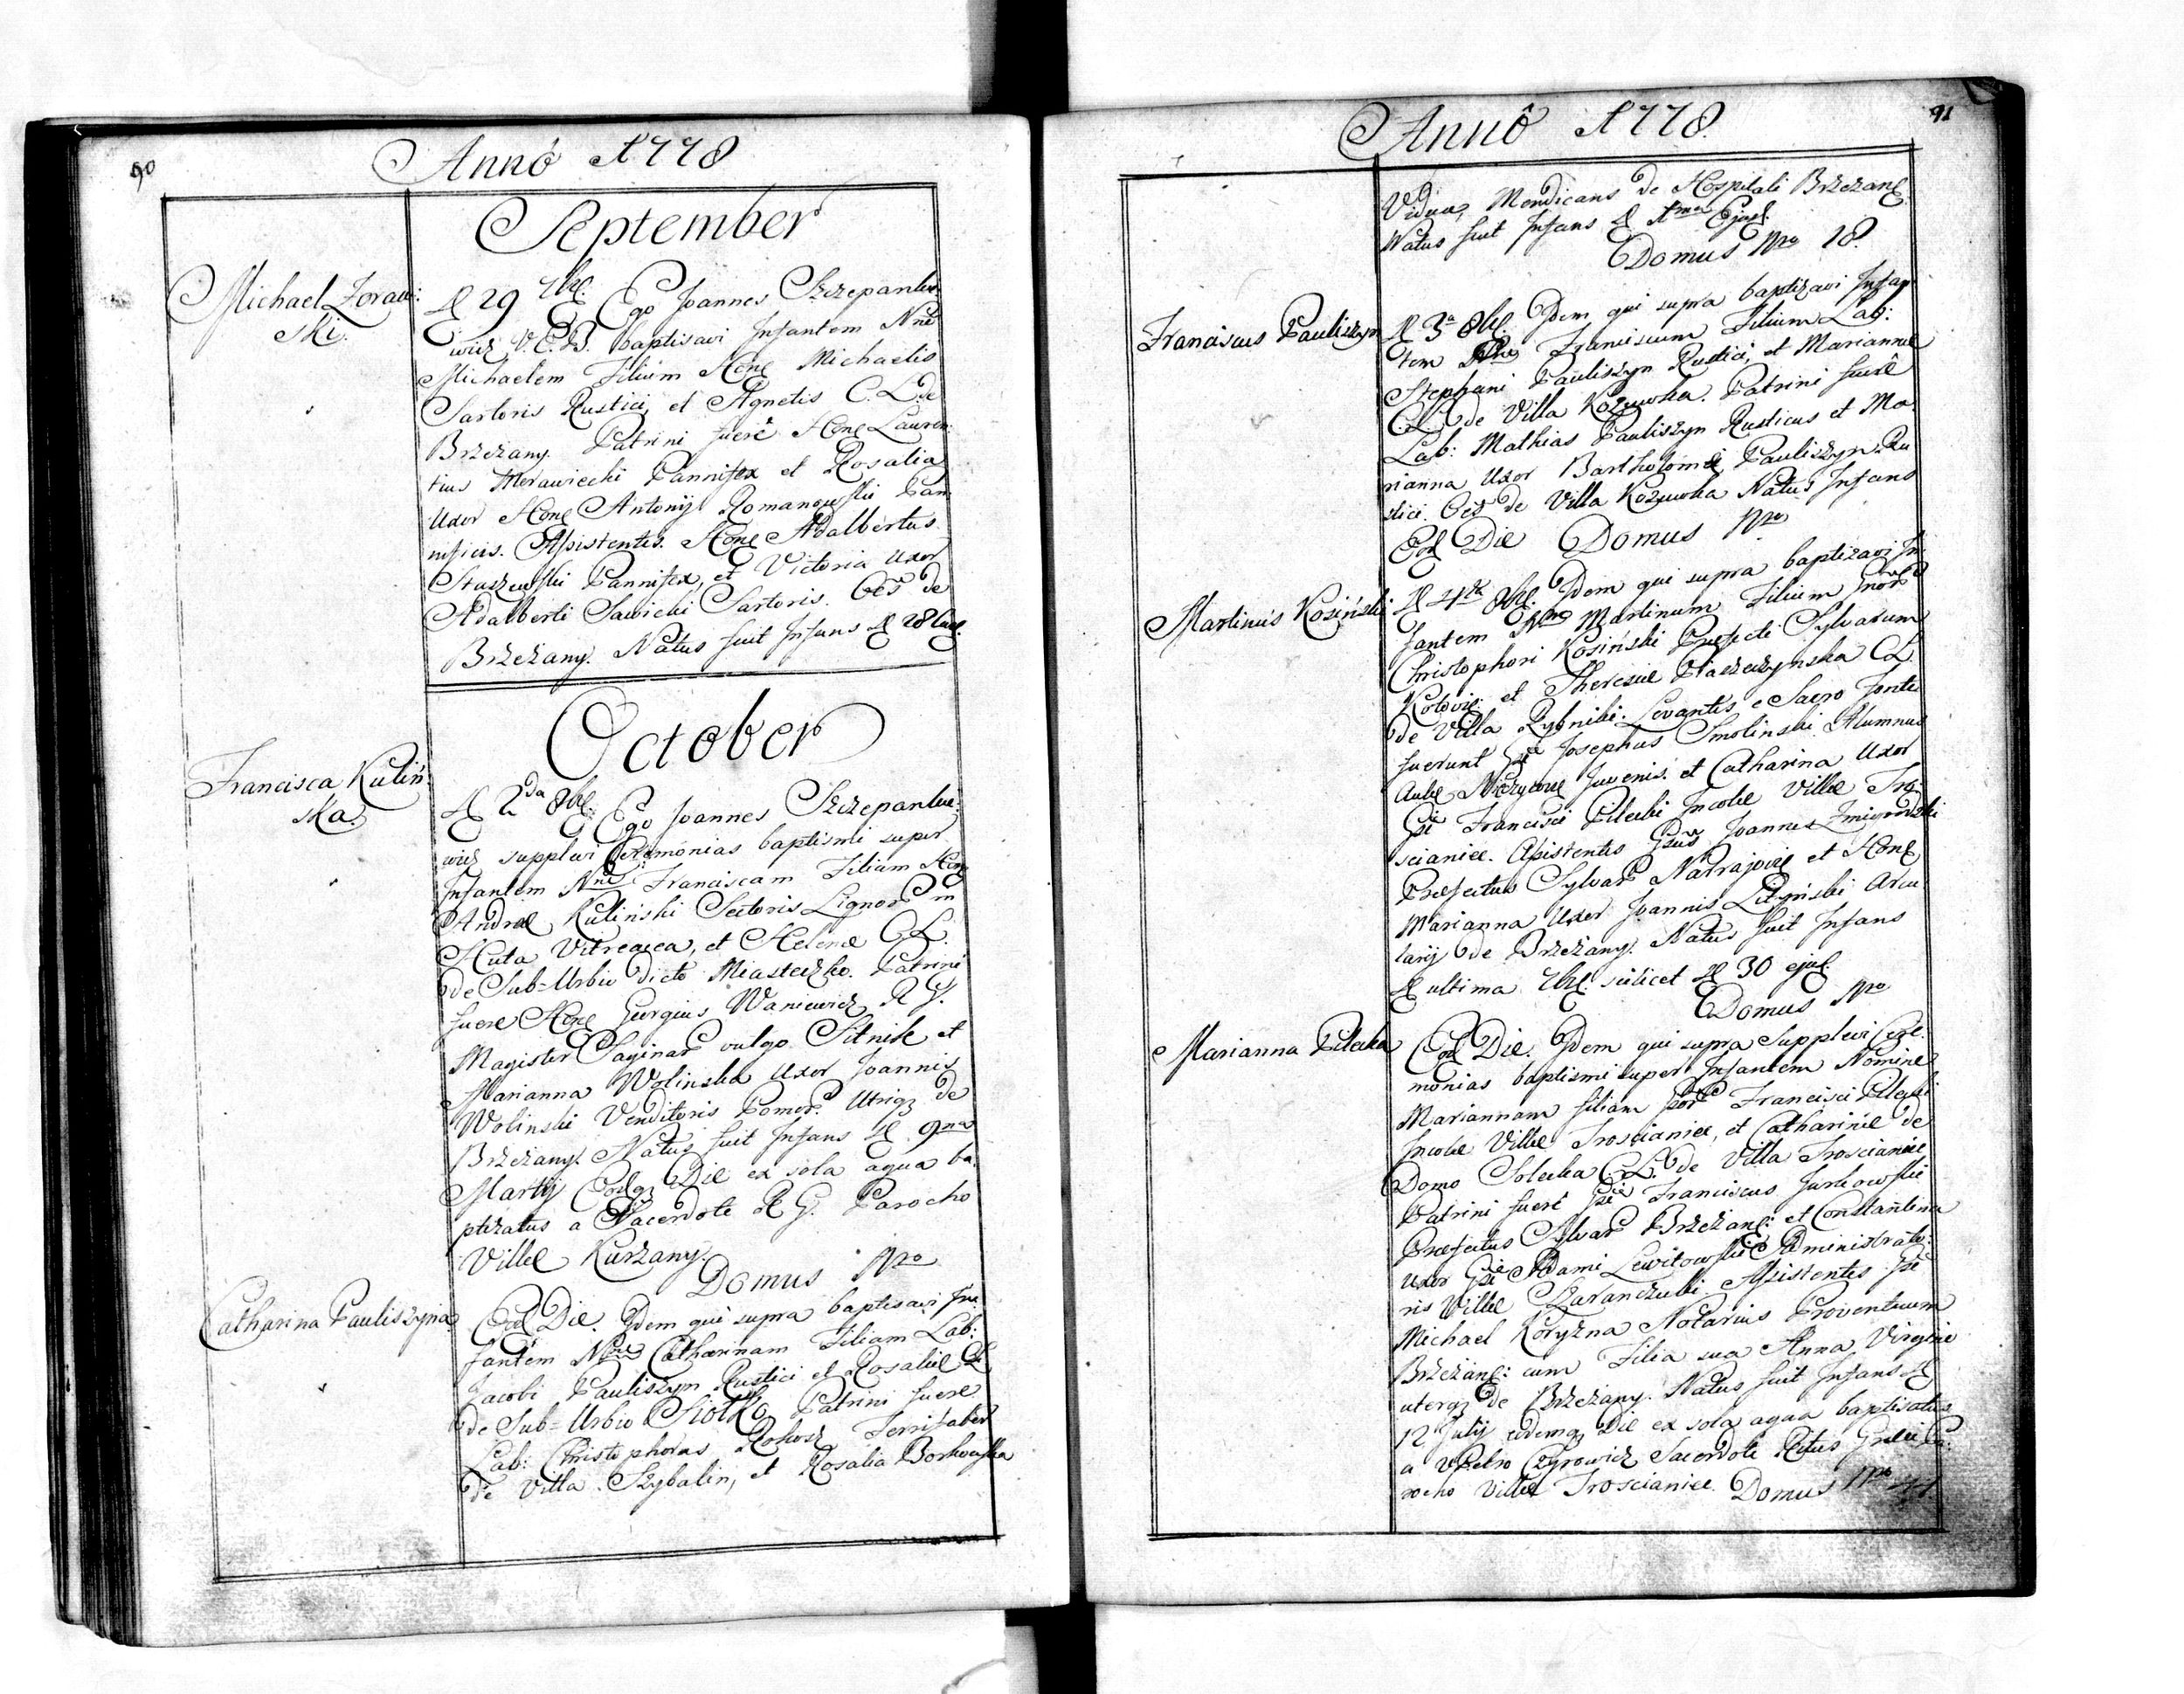 90
Annô 1778
September
Michael Zoraw:
ski.
D 29 7bris. Ego Joannes Szczepankie-
wicz V. C. B. baptisavi Infantem Nne
Michaelem Filium Hon Michaelis
Sartoris Rustici, et Agnetis C. L. de
Brzeżany. Patrini fuere Hon Lauren:
tius Merawiecki Pannifex et Rosalia
Uxor Hon Antonij Romanowski Pan-
nificis. Assistentes. Hon Adalbertus
Staszewski Pannifex, et Victoria Uxor
Adalberti Sawicki Sartoris. Oes de
Brzeżany. Natus fuit Infans D 28
October
Francisca Kuliń-
ska.
D 2da 8bris. Ego Joannes Szczepankie-
wicz supplevi Ceremonias baptismi super
Infantem Nne Franciscam Filiam Hon
Andreæ Kuliński Sectoris Lignor in
Huta Vitreacea, et Helenæ C. L.
de Sub-Urbio dicto Miasteczko. Patrini
fuere Hon Georgius Waniewicz R. G.
Magister Saginar vulgo Sitnik et
Marianna Wolinska Uxor Joannis
Wolinski Venditoris Pomor. Utriq de
Brzeżany. Natus fuit Infans D 9na
Martij Eodq Die ex sola aqua ba-
ptizatus a Sacerdote R. G. Parocho
Villæ Kurzany.
Domus Nro
Catharina Pauliszyna
Eod Die. Idem qui supra baptisavi In-
fantem Nne Catharinam Filiam Lab:
Jacobi Pauliszyn Rustici et Rosaliæ CL
de Sub-Urbio Siołko Patrini fuere
Lab: Christophorus Rokosz Ferrifaber
de Villa Szybalin, et Rosalia Borkowska
91
Annô 1778.
Vidua, Mendicans de Hospitali Brzezan
Natus fuit Infans D 1ma Ejusd.
Domus Nro 18.
Franciscus Pauliszyn
D 3a 8bris. Idem qui supra baptizavi Infan-
tem Nne Franciscum Filium Lab:
Stephani Pauliszyn Rustici, et Mariannæ
CL de Villa Kozuwka. Patrini fuerê
Lab: Mathias Pauliszyn Rusticus et Ma-
rianna Uxor Bartholomei Pauliszyn Ru-
stici. Oes de Villa Kozuwka Natus Infans
Eod Die Domus Nro
Martinus Kosiński
D 4ta 8bris. Idem qui supra baptizavi In-
fantem Nne Martinum Filium Gnor
Christophori Kosiński Præfecti Sylvarum
et Theresiæ CL
de Villa Rybniki. Levantes e Sacro Fonte
fuerunt Gsi Josephus Smolinski Alumnus
Aulæ Juvenis. et Catharina Uxor
Gsi Francisci Pilecki Incolæ Villæ Tro-
scianiec. Assistentes Gsus Joannes Zmigrodzki
Præfectus Sylvar Narrajoviæ et Hon
Marianna Uxor Joannis Litynski Arcu-
larij de Brzeżany. Natus fuit Infans
D ultima 7bris. scilicet D 30 ejusd.
Domus Nro
Marianna Pilecka
Eod Die. Idem qui supra Supplevi Cere-
monias baptismi super Infantem Nomine
Mariannam filiam Gsor Francisci Pilecki
Incolæ Villæ Troscianiec, et Catharinæ de
Domo Solecka C. L. de Villa Troscianiec
Patrini fuerê Gsi Franciscus Jurkowski
Præfectus Sylvar Brzeżan: et Constantina
Uxor Gsi Adami Lewitowski Administrato-
ris Villæ Szaranczuki. Assistentes Gsi
Michael Koryzna Notarius Proventuum
Brzeżan: cum Filia sua Anna Virgine
uterq de Brzeżany. Natus fuit Infans D
12 Julij eodemq Die ex sola aqua baptisatus
a Petro Czyrowicz Sacerdote Ritus Græci Pa-
rocho Villæ Troscianiec. Domus Nro 44